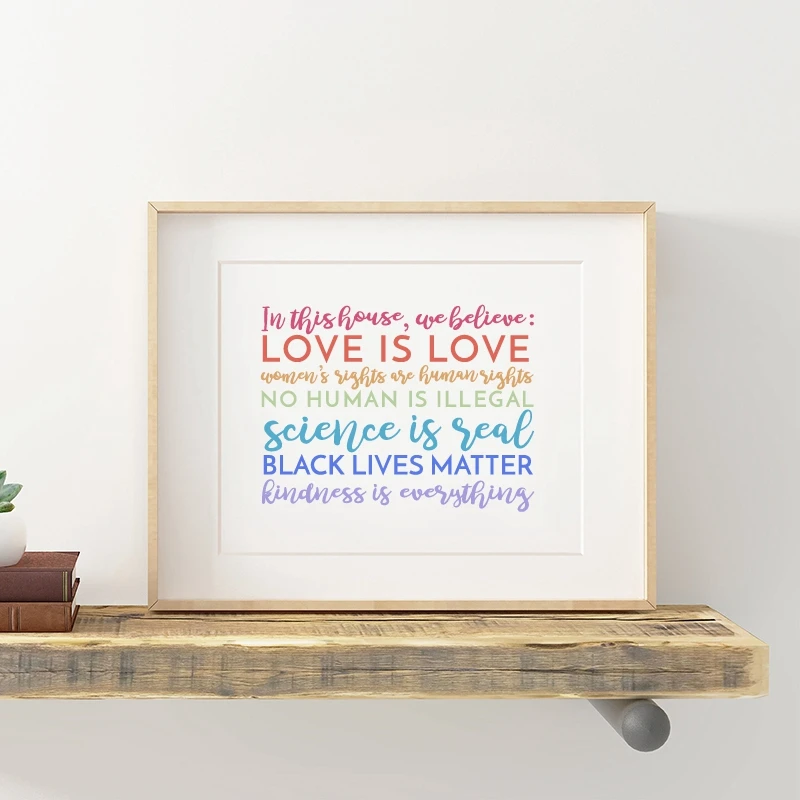 In this house, we believe:
LOVE IS LOVE
women's rights are human rights
NO HUMAN IS ILLEGAL
science is real
BLACK LIVES MATTER
kindness is everything